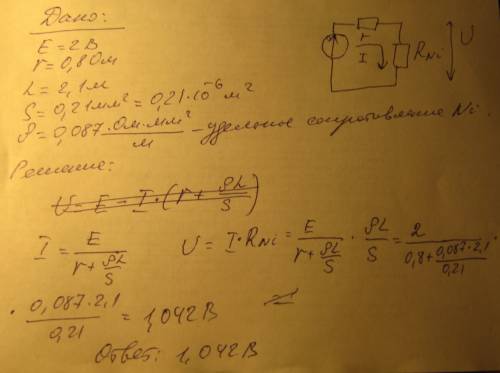 Дано:
E = 2В
r = 0,8 Ом
L = 2,1 м
S = 0,21 мм² = 0,21·10⁻⁶ м²
ρ = 0,087 · Ом·мм²/м – удельное сопротивление Ni.
r
I
R_Ni
U
Решение:
U = E - I·(r + ρL/S)
I = E/(r + ρL/S)   U = I·R_Ni = E/(r + ρL/S) · ρL/S = 2/(0,8 + 0,087·2,1/0,21)
· 0,087·2,1/0,21 = 1,042 В
Ответ: 1,042 В